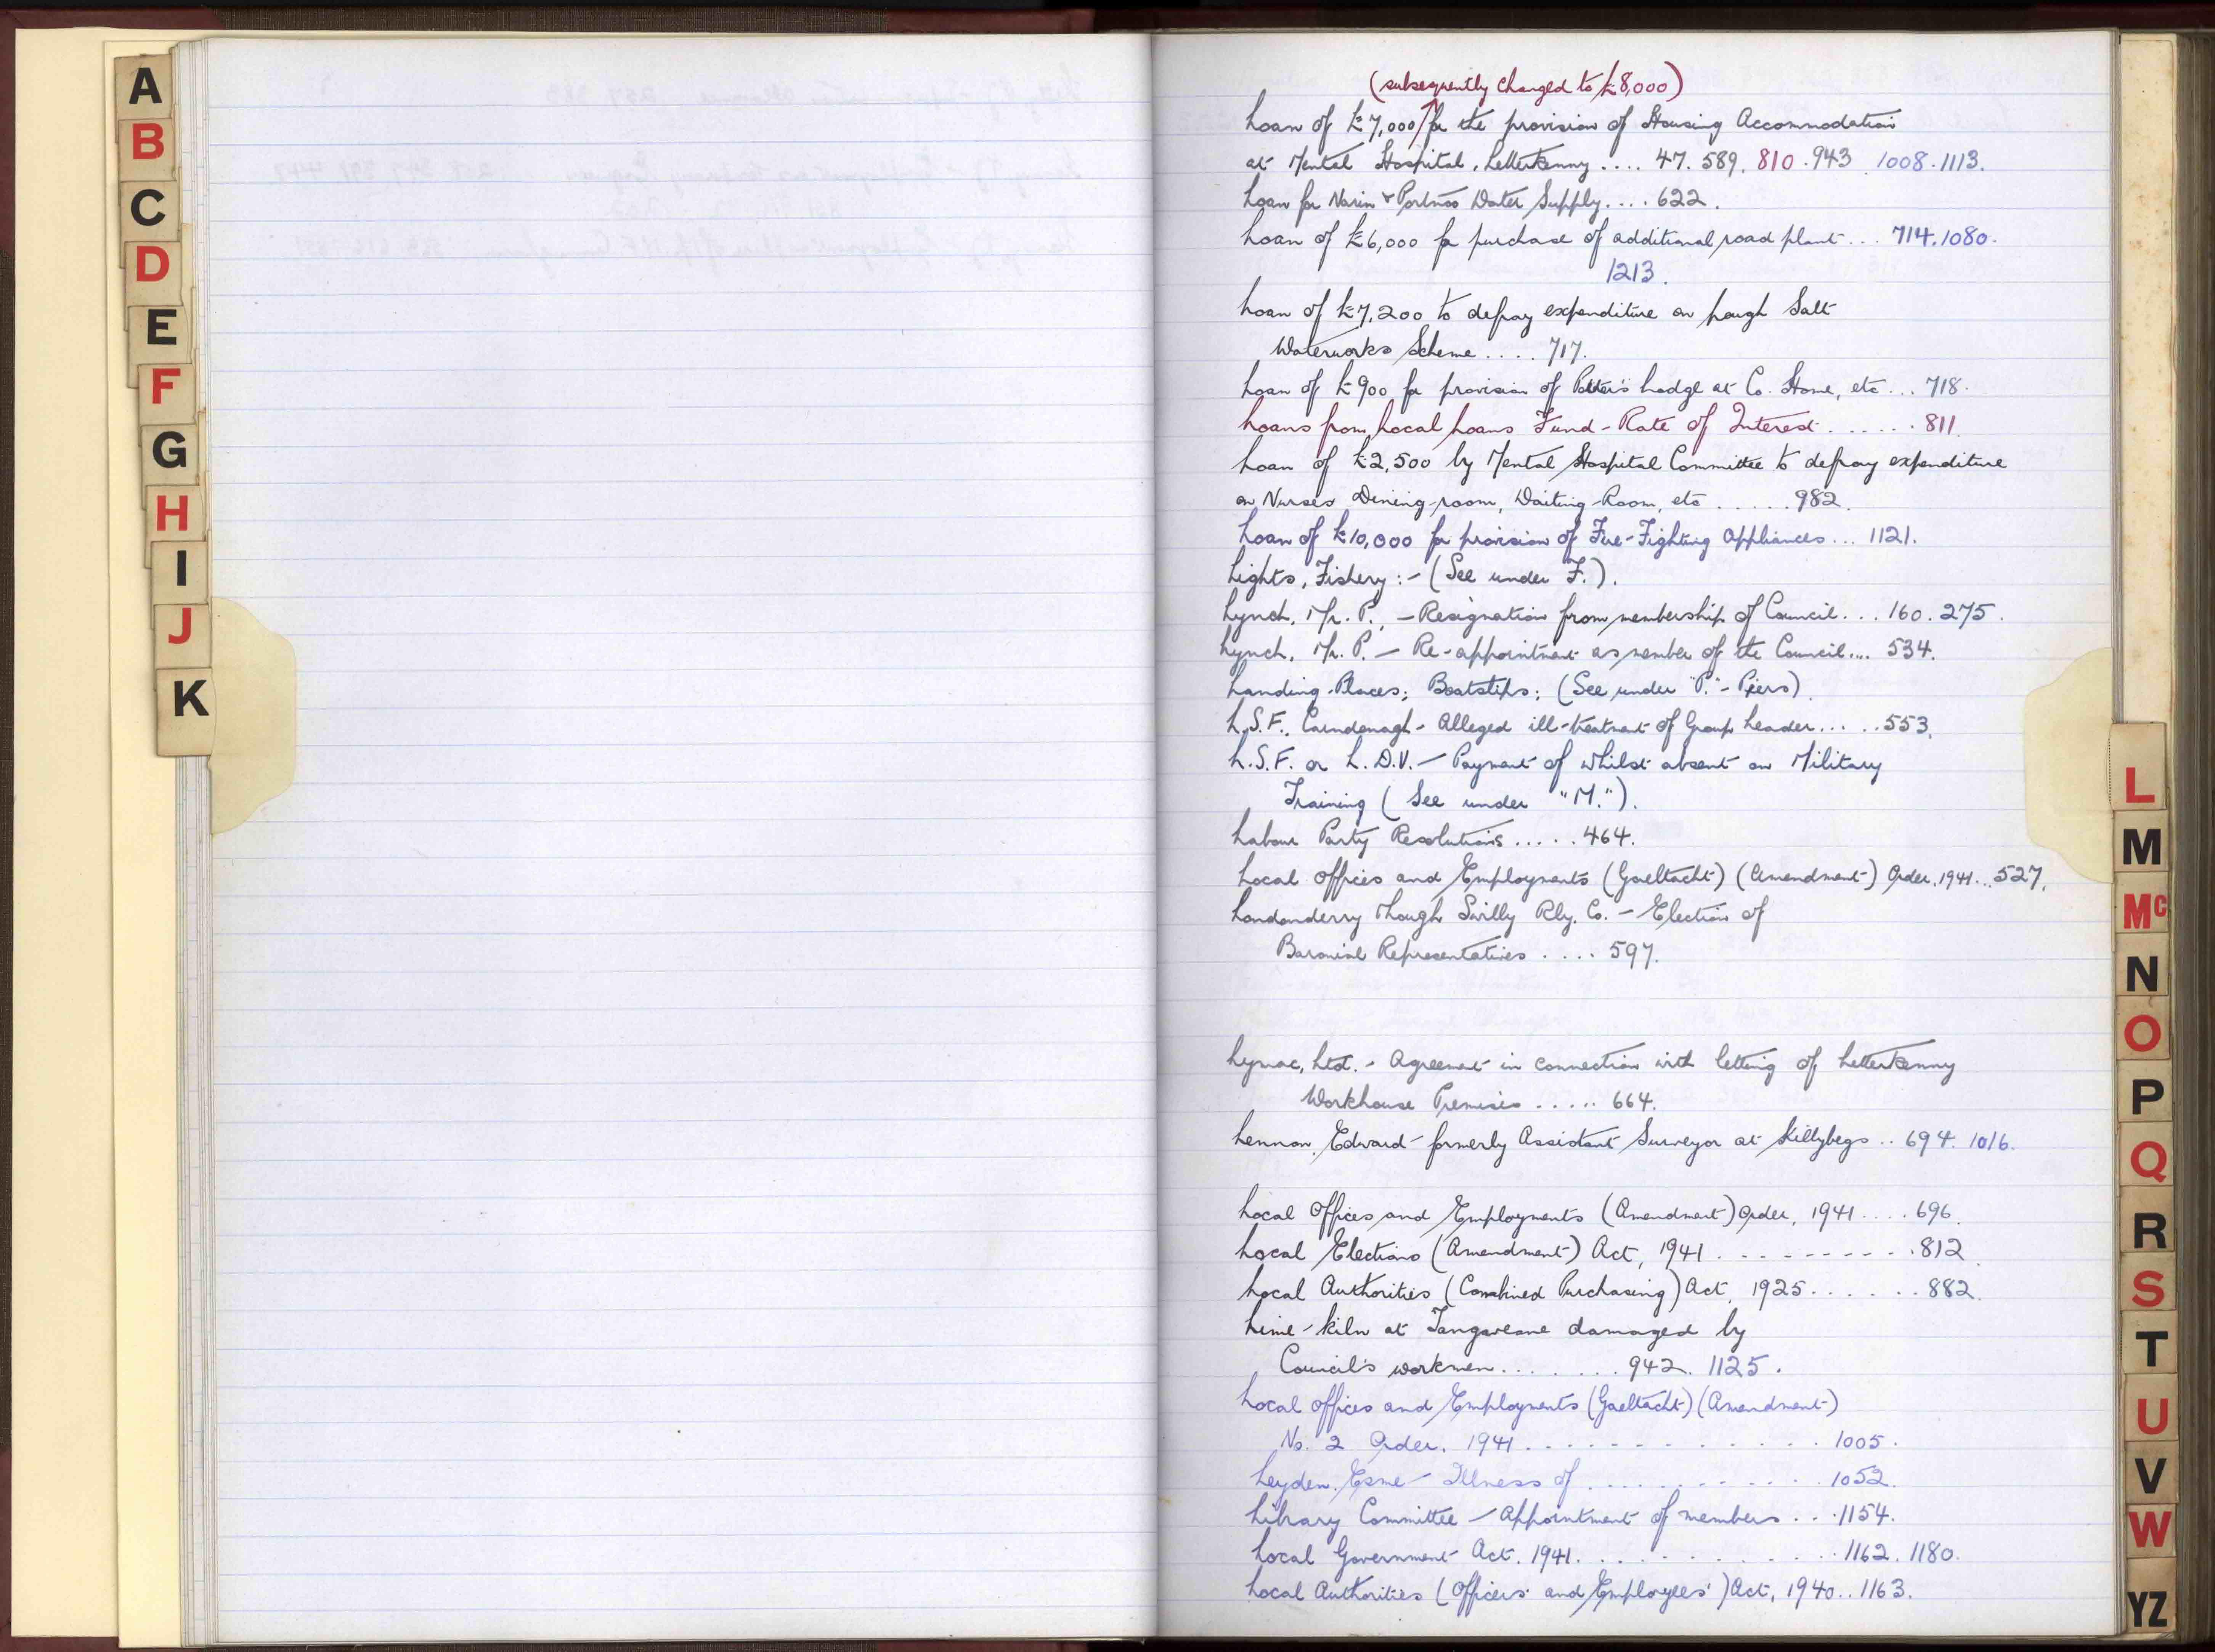 A
B
C
D
E
F
G
H
I
J
K
(subsequently changed to £8,000)
Loan of £7,000 for the provision of Housing Accommodation
at Mental Hospital, Letterkenny .... 47. 589. 810. 943. 1008. 1113.
Loan for Narin & Portnoo Water Supply.... 622.
Loan of £6,000 for purchase of additional road plant... 714. 1080.
1213.
Loan of £7,200 to defray expenditure on Lough Salt
Waterworks Scheme.... 717.
Loan of £900 for provision of Porter's Lodge at Co. Home, etc... 718.
Loans from Local Loans Fund - Rate of Interest...... 811.
Loan of £2,500 by Mental Hospital Committee to defray expenditure
on Nurses Dining-room, Waiting-Room, etc ..... 982.
Loan of £10,000 for provision of Fire-Fighting Appliances... 1121.
Lights, Fishery:- (See under F.).
Lynch, Mr. P., - Resignation from membership of Council... 160. 275.
Lynch, Mr. P. - Re-appointment as member of the Council.... 534.
Landing-Places; Boatslips; (See under "P." - Piers).
L.S.F., Carndonagh - Alleged ill-treatment of Group Leader..... 553.
L.S.F. or L.D.V. - Payment of whilst absent on Military
Training (See under "M.").
Labour Party Resolutions..... 464.
Local Offices and Employments (Gaeltacht) (Amendment) Order, 1941... 527.
Londonderry & Lough Swilly Rly. Co. - Election of
Baronial Representatives .... 597.
Lymac, Ltd. - Agreement in connection with letting of Letterkenny
Workhouse Premises ..... 664.
Lennon, Edward - formerly Assistant Surveyor at Killybegs.. 694. 1016.
Local Offices and Employments (Amendment) Order, 1941.... 696.
Local Elections (Amendment) Act, 1941.......... 812.
Local Authorities (Combined Purchasing) Act, 1925....... 882.
Lime-kiln at Tangaveane damaged by
Council's workmen........ 942. 1125.
Local Offices and Employments (Gaeltacht) (Amendment)
No. 2 Order, 1941............. 1005.
Leyden, Esme - Illness of .......... 1052.
Library Committee - Appointment of members... 1154.
Local Government Act, 1941............ 1162. 1180.
Local Authorities (Officers and Employees) Act, 1940.. 1163.
L
M
Mc
N
O
P
Q
R
S
T
U
V
W
YZ